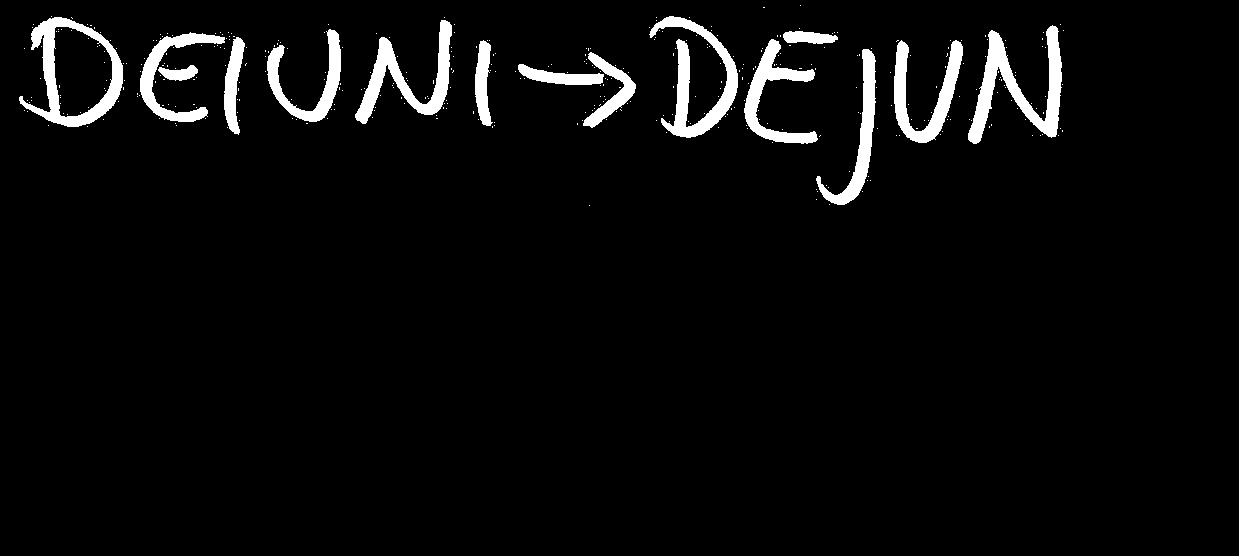 DEIUNI → DEJUN